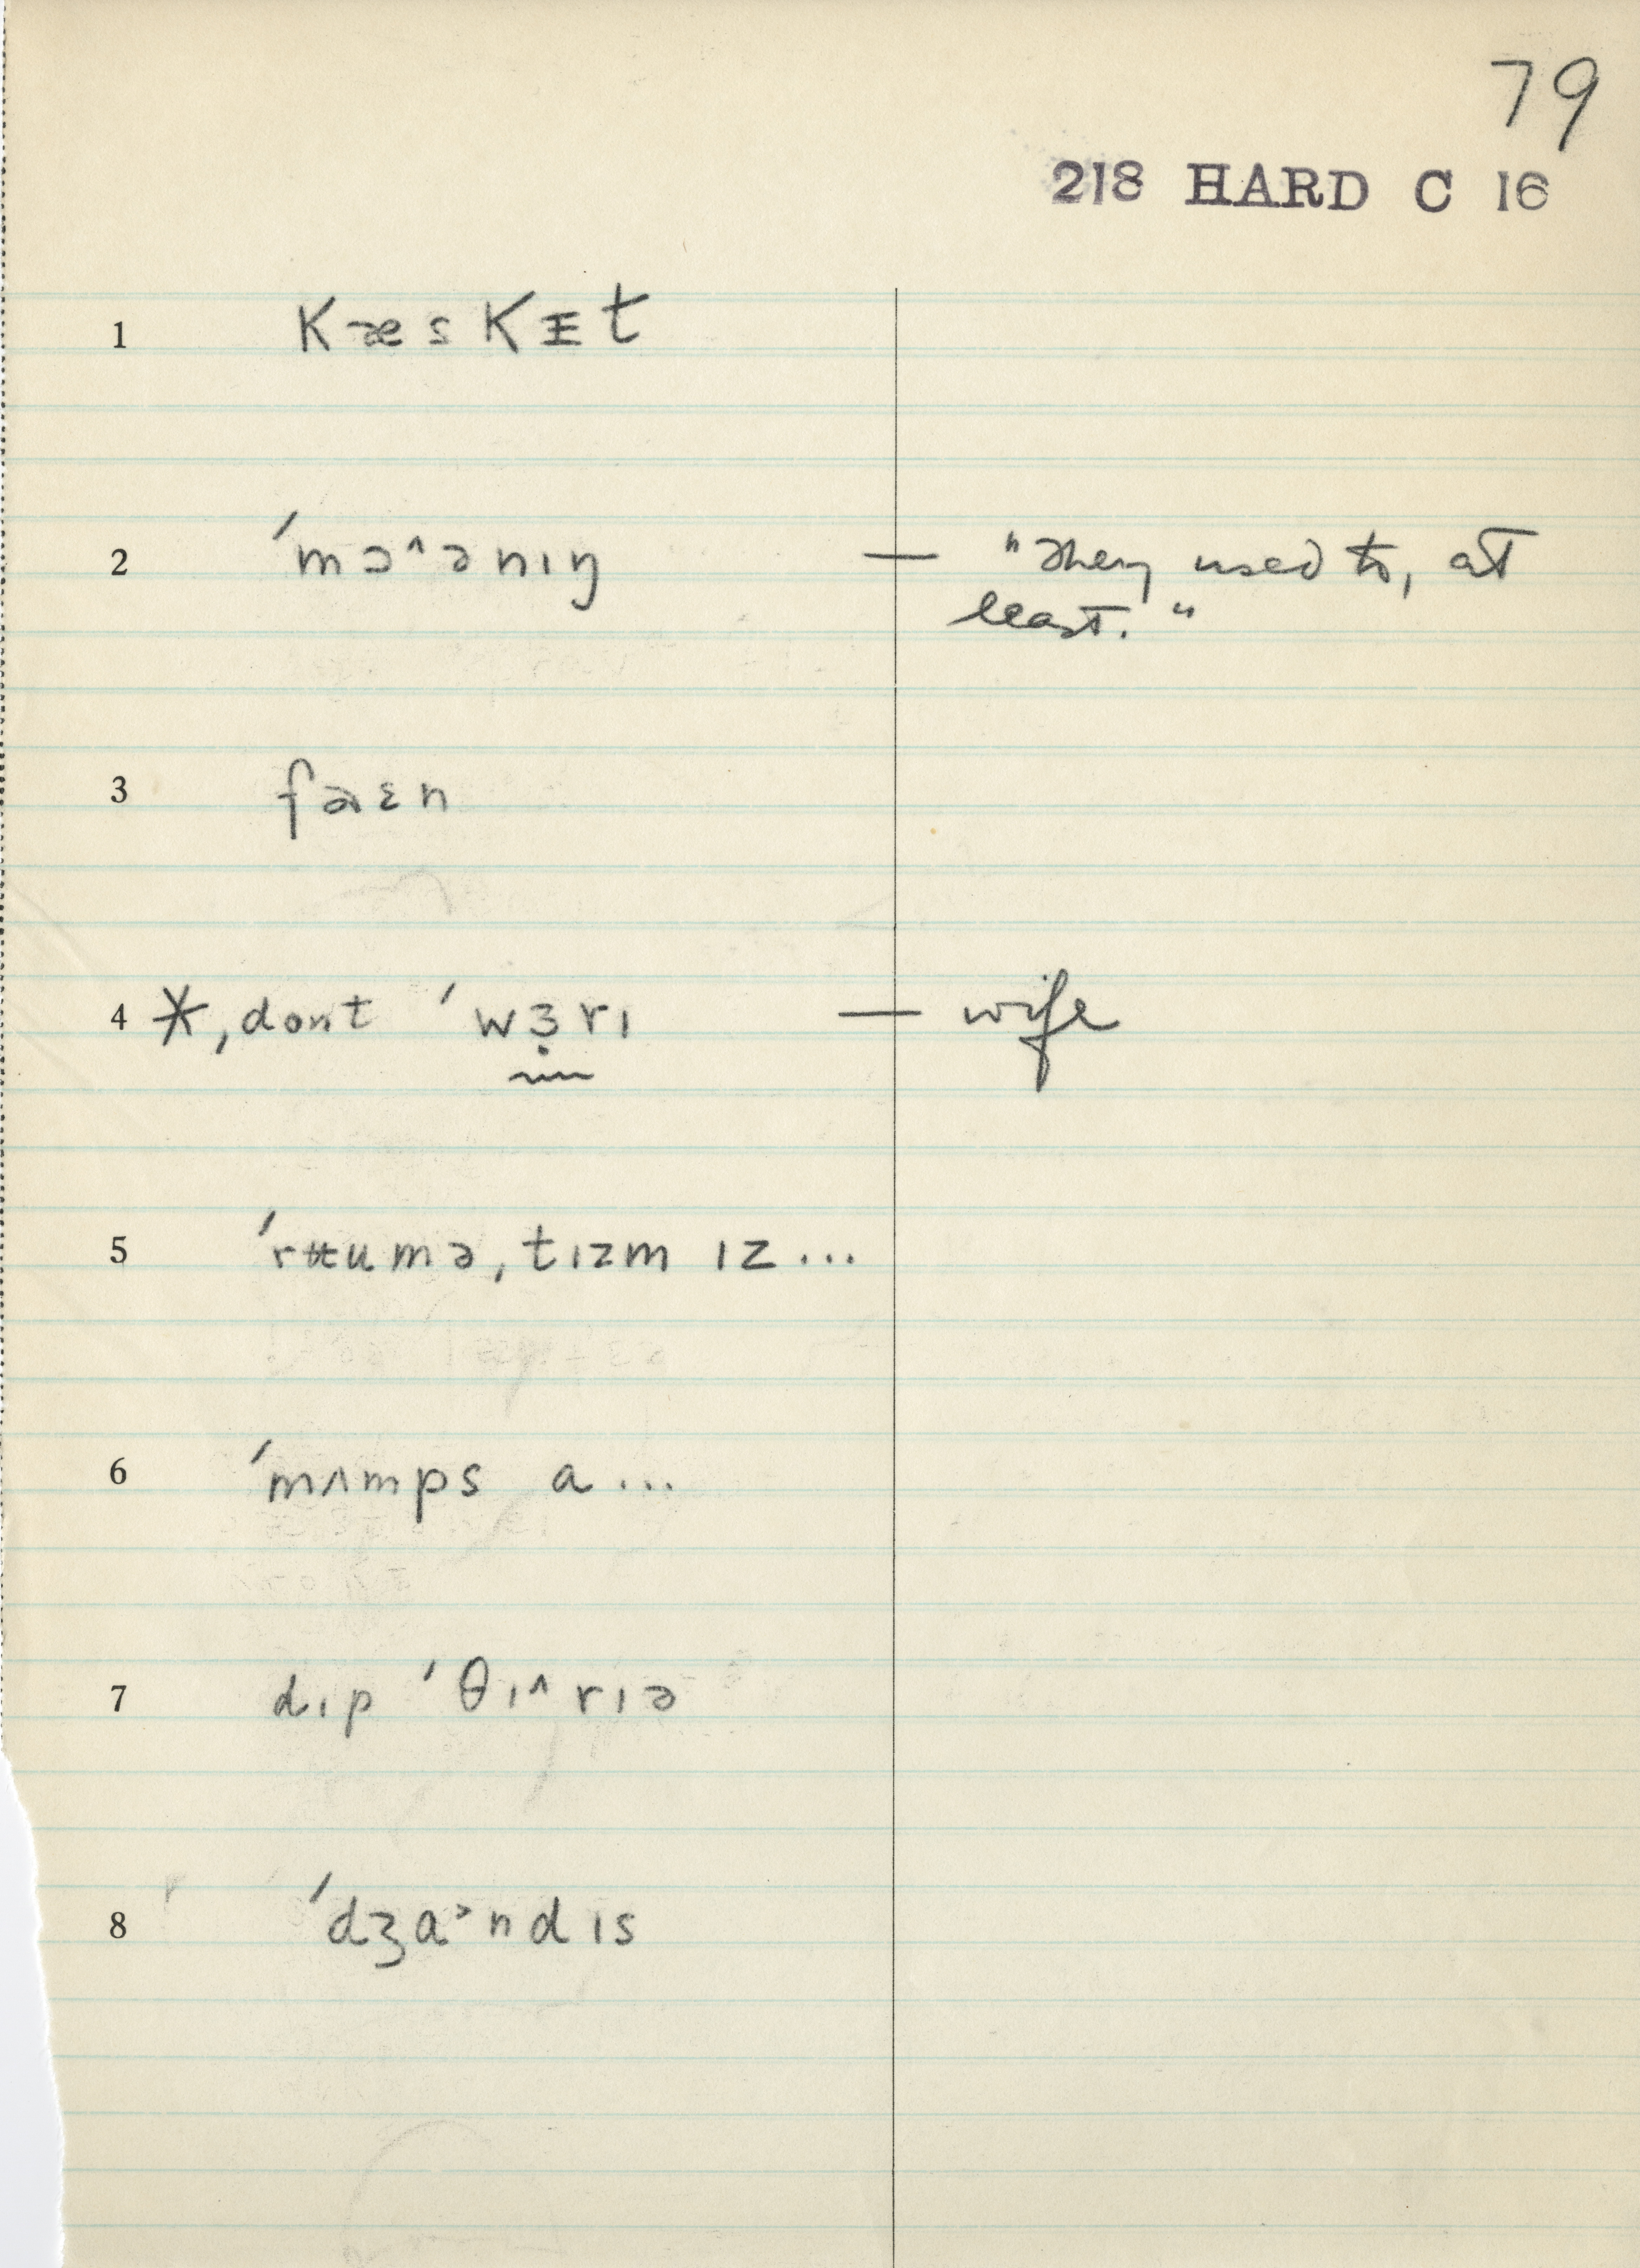 79
218 HARD C 16
1 KæsKᵻt
2 ˈmɔ^ənɪŋ — "They used to, at
least."
3 faɛn
4 *, dont ˈwɜ̣rɪ — wife
5 ˈrʉumə,tɪzm ɪz...
6 ˈmʌmps a...
7 dɪp ˈθɪ^rɪə
8 ˈdʒa>ndɪs